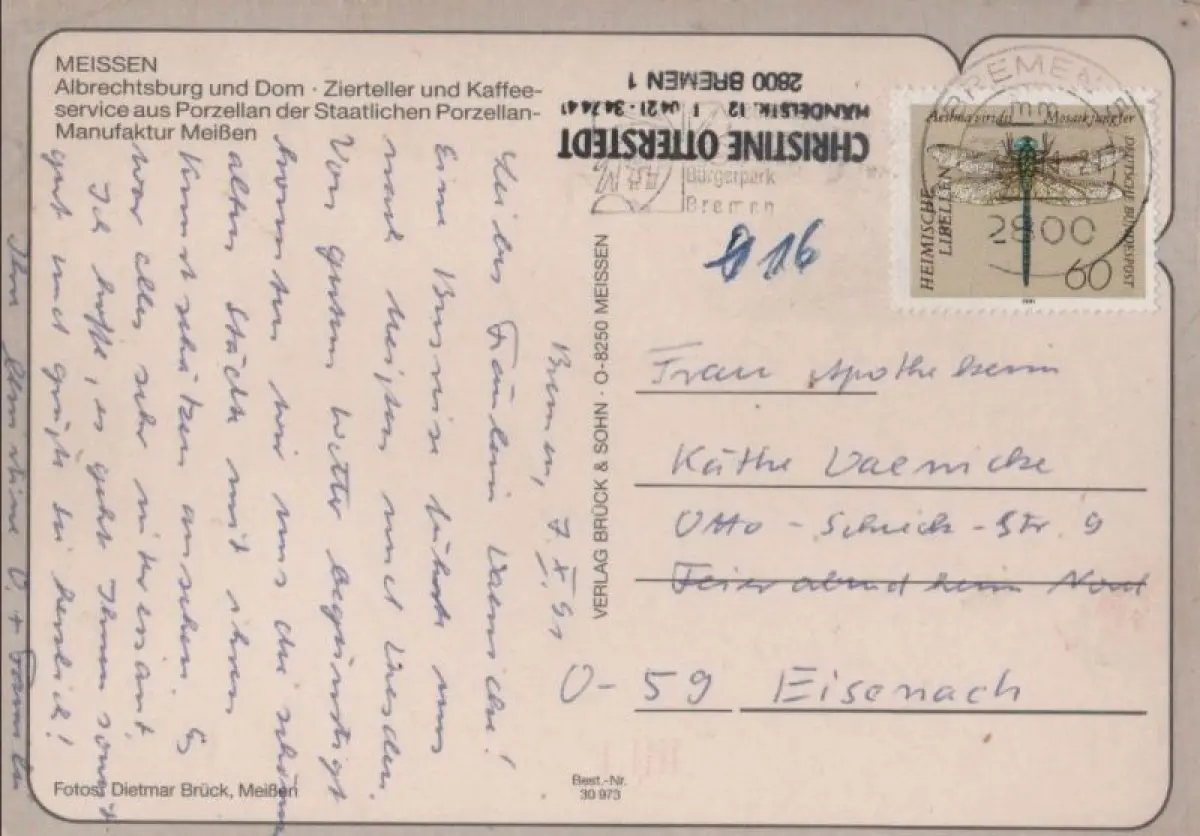 MEISSEN
Albrechtsburg und Dom · Zierteller und Kaffee-
service aus Porzellan der Staatlichen Porzellan-
Manufaktur Meißen
CHRISTINE OTTERSTEDT
HÄNDELSTR. 12 T 0421 - 34 74 41
2800 BREMEN 1
Bürgerpark
Bremen
BREMEN
mm
2800
Aeshna viridis Mosaikjungfer
HEIMISCHE
LIBELLEN
DEUTSCHE BUNDESPOST
60
916
Bremen, 7.X.91
Liebes Fräulein Daenicke!
Eine Busreise führte uns
nach Meißen und Dresden.
Von gutem Wetter begünstigt
konnten wir uns die schönen
alten Städte mit ihren
Kunstschätzen ansehen. Es
war alles sehr interessant.
Ich hoffe, es geht Ihnen soweit
gut und grüße Sie herzlich!
Ihre Christine O. + Familie
VERLAG BRÜCK & SOHN · O-8250 MEISSEN
Frau Apothekerin
Käthe Daenicke
Otto - Schieck - Str. 9
Feierabendheim Nord
O- 59 Eisenach
Fotos: Dietmar Brück, Meißen
Best.-Nr.
30 973